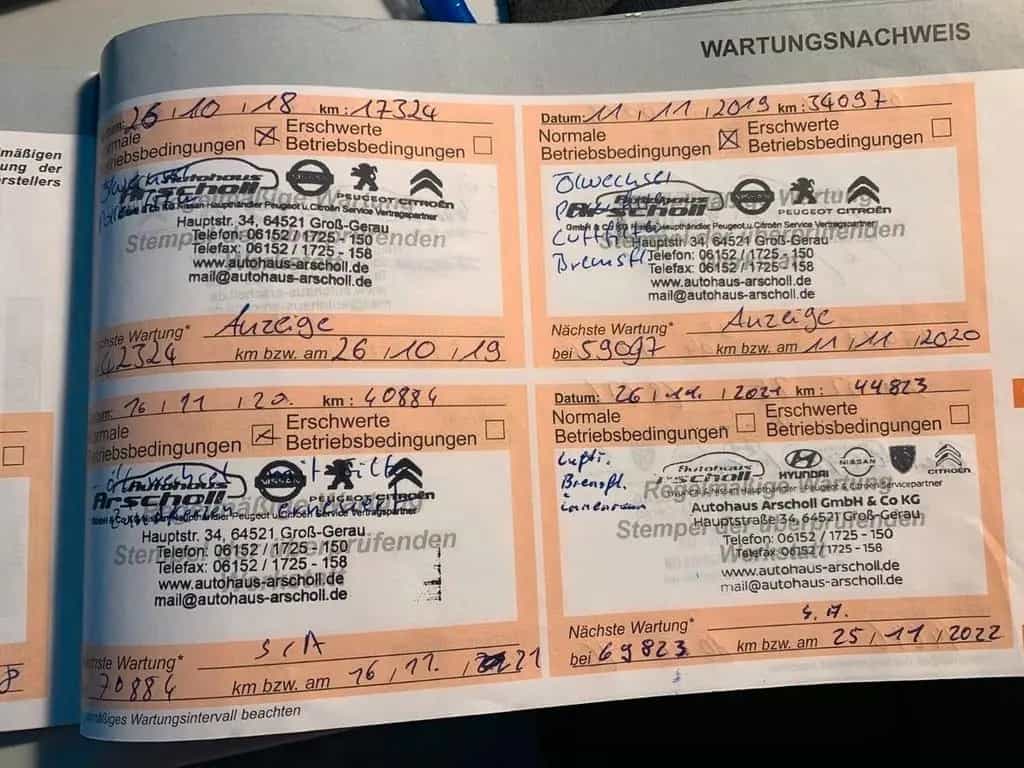 WARTUNGSNACHWEIS
mäßigen
ung der
erstellers
8
26 / 10 / 18 km : 17324
Normale
Betriebsbedingungen
Erschwerte
Betriebsbedingungen
Autohaus
Arscholl
PEUGEOT CITROËN
Nissan Haupthändler Peugeot u. Citroën Service Vertragspartner
Hauptstr. 34, 64521 Groß-Gerau
Stempel der überprüfenden
Telefon: 06152 / 1725 - 150
Telefax: 06152 / 1725 - 158
www.autohaus-arscholl.de
mail@autohaus-arscholl.de
Nächste Wartung* Anzeige
42324 km bzw. am 26 / 10 / 19
Datum: 11 / 11 / 2019 km : 34097
Normale
Betriebsbedingungen
Erschwerte
Betriebsbedingungen
Ölwechsel
Autohaus
Arscholl
NISSAN PEUGEOT CITROËN
GmbH & Co KG Nissan Haupthändler Peugeot u. Citroën Service Vertragspartner
Hauptstr. 34, 64521 Groß-Gerau
Telefon: 06152 / 1725 - 150
Bremsfl
Telefax: 06152 / 1725 - 158
www.autohaus-arscholl.de
mail@autohaus-arscholl.de
Nächste Wartung* Anzeige
bei 59097 km bzw. am 11 / 11 / 2020
16 / 11 / 20. km : 40884
Normale
Betriebsbedingungen
Erschwerte
Betriebsbedingungen
Autohaus
Arscholl
NISSAN PEUGEOT CITROËN
Haupthändler Peugeot u. Citroën Service Vertragspartner
Hauptstr. 34, 64521 Groß-Gerau
Stempel der überprüfenden
Telefon: 06152 / 1725 - 150
Telefax: 06152 / 1725 - 158
www.autohaus-arscholl.de
mail@autohaus-arscholl.de
Nächste Wartung* S/A
70884 km bzw. am 16 / 11. / 21
Datum: 26 / 11. / 2021 km : 44823
Normale
Betriebsbedingungen
Erschwerte
Betriebsbedingungen
Luftf.
Bremsfl.
innenraum
Autohaus
Arscholl
HYUNDAI NISSAN CITROËN
Regelmäßige Wartung
Autohaus Arscholl GmbH & Co KG
Hauptstraße 34, 64521 Groß-Gerau
Stempel der überprüfenden
Werkstatt
Telefon: 06152 / 1725 - 150
Telefax: 06152 / 1725 - 158
www.autohaus-arscholl.de
mail@autohaus-arscholl.de
Nächste Wartung*
bei 69823 km bzw. am 25 / 11 / 2022
mäßiges Wartungsintervall beachten